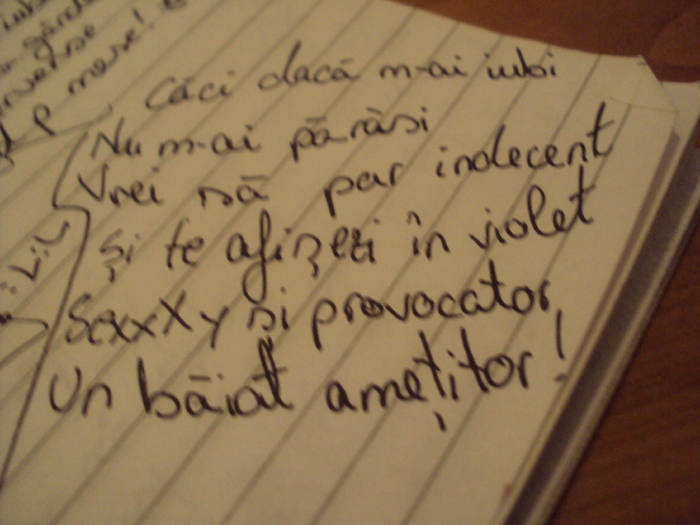 căci dacă m-ai iubi
Nu m-ai părăsi
Vrei să par indecent
Și te afișezi în violet
Sexxxy și provocator,
Un băiat amețitor!